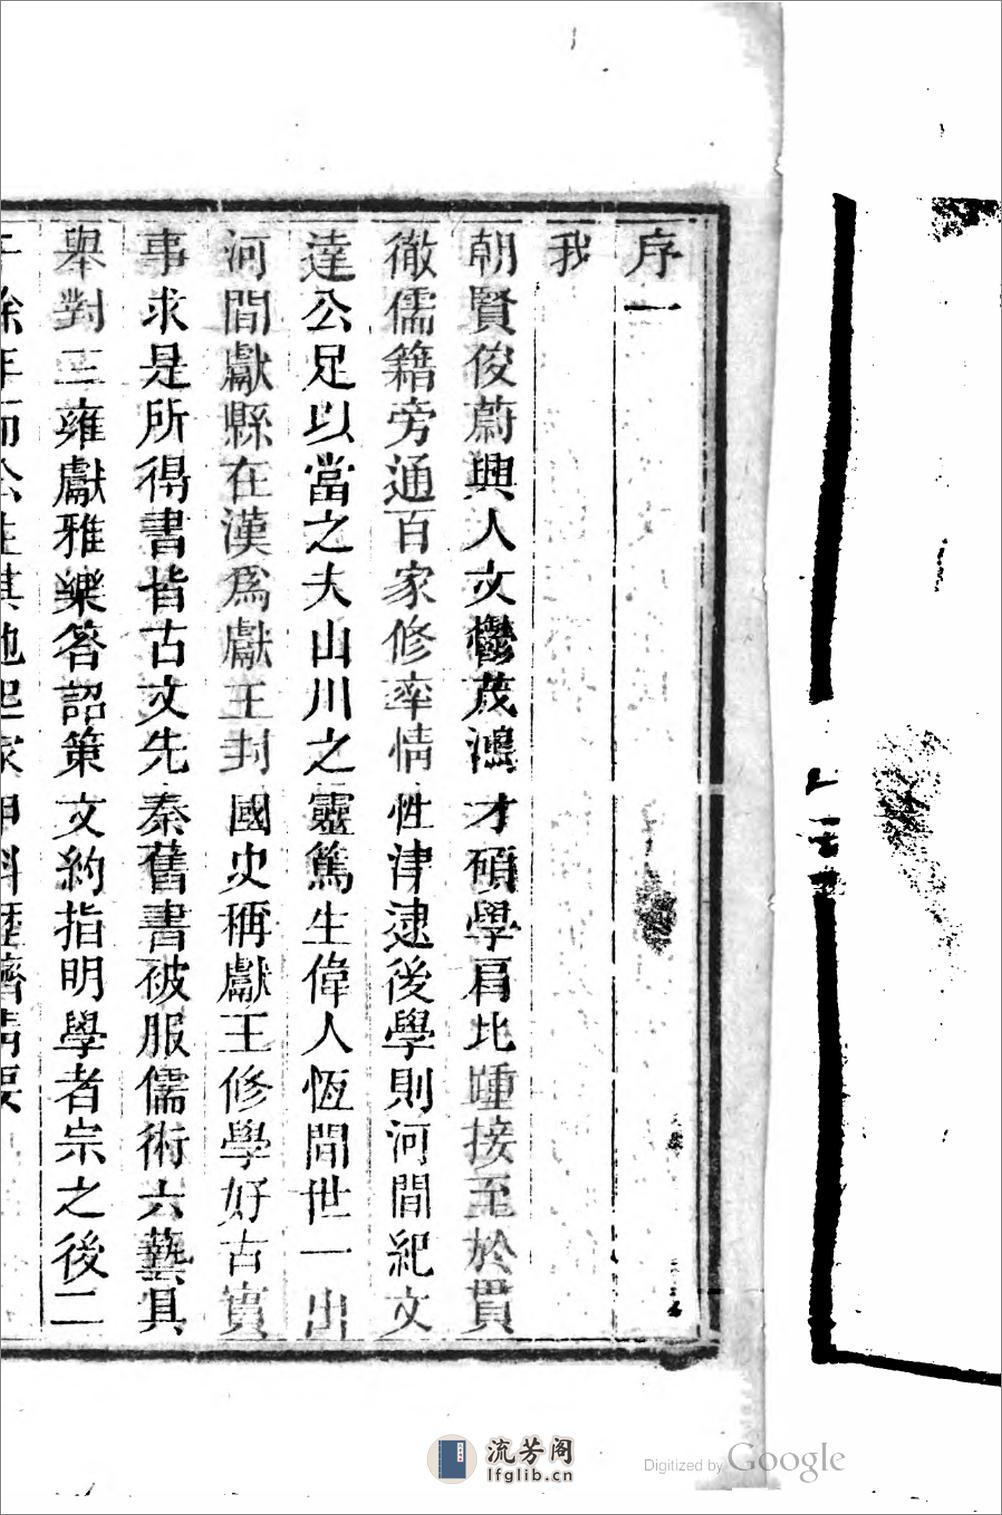 序一
我
朝賢俊蔚興人文鬱茂鴻才碩學肩比踵接至於貫
徹儒籍旁通百家修率情性津逮後學則河間紀文
達公足以當之夫山川之靈篤生偉人恆間世一出
河間獻縣在漢爲獻王封國史稱獻王修學好古實
事求是所得書皆古文先秦舊書被服儒術六藝具
舉對三雍獻雅樂答詔策文約指明學者宗之後二
餘年而公生其地起家甲科歷躋清要
流芳阁
lfglib.cn
Digitized by Google